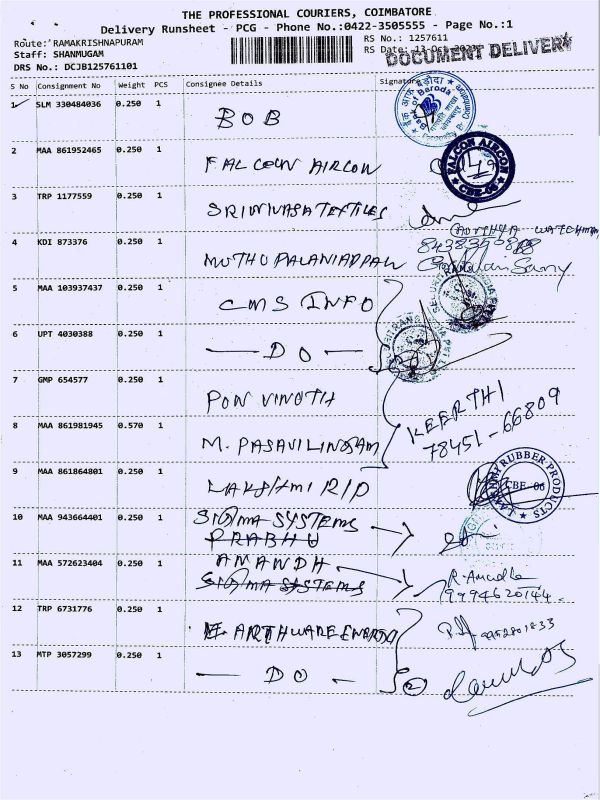 THE PROFESSIONAL COURIERS, COIMBATORE
Delivery Runsheet - PCG - Phone No.:0422-3505555 - Page No.:1
Route: RAMAKRISHNAPURAM RS No.: 1257611
Staff: SHANMUGAM RS Date:
DOCUMENT DELIVERY
DRS No.: DCJB125761101
S No Consignment No Weight PCS Consignee Details Signature
1 SLM 330484036 0.250 1 BOB
बैंक ऑफ़ बड़ौदा Bank of Baroda
2 MAA 861952465 0.250 1 FALCOUN AIRCON
FALCON AIRCON CBE-06
3 TRP 1177559 0.250 1 SRINIVASA TEXTILES
4 KDI 873376 0.250 1 MUTHU PALANIAPPAN
5 MAA 103937437 0.250 1 CMS INFO
6 UPT 4030388 0.250 1 — DO —
7 GMP 654577 0.250 1 PON VINOTH
KEERTHI
78451-66809
8 MAA 861981945 0.570 1 M. PASAVILINGAM
9 MAA 861864801 0.250 1 LAKSHMI R/P
RUBBER PRODUCTS CBE-06
10 MAA 943664401 0.250 1 SIGMA SYSTEMS
PRABHU
11 MAA 572623404 0.250 1 ANANDH
SIGMA SYSTEMS
9994620144
12 TRP 6731776 0.250 1 EARTHWARE ENERGY
9952801833
13 MTP 3057299 0.250 1 — DO — 2